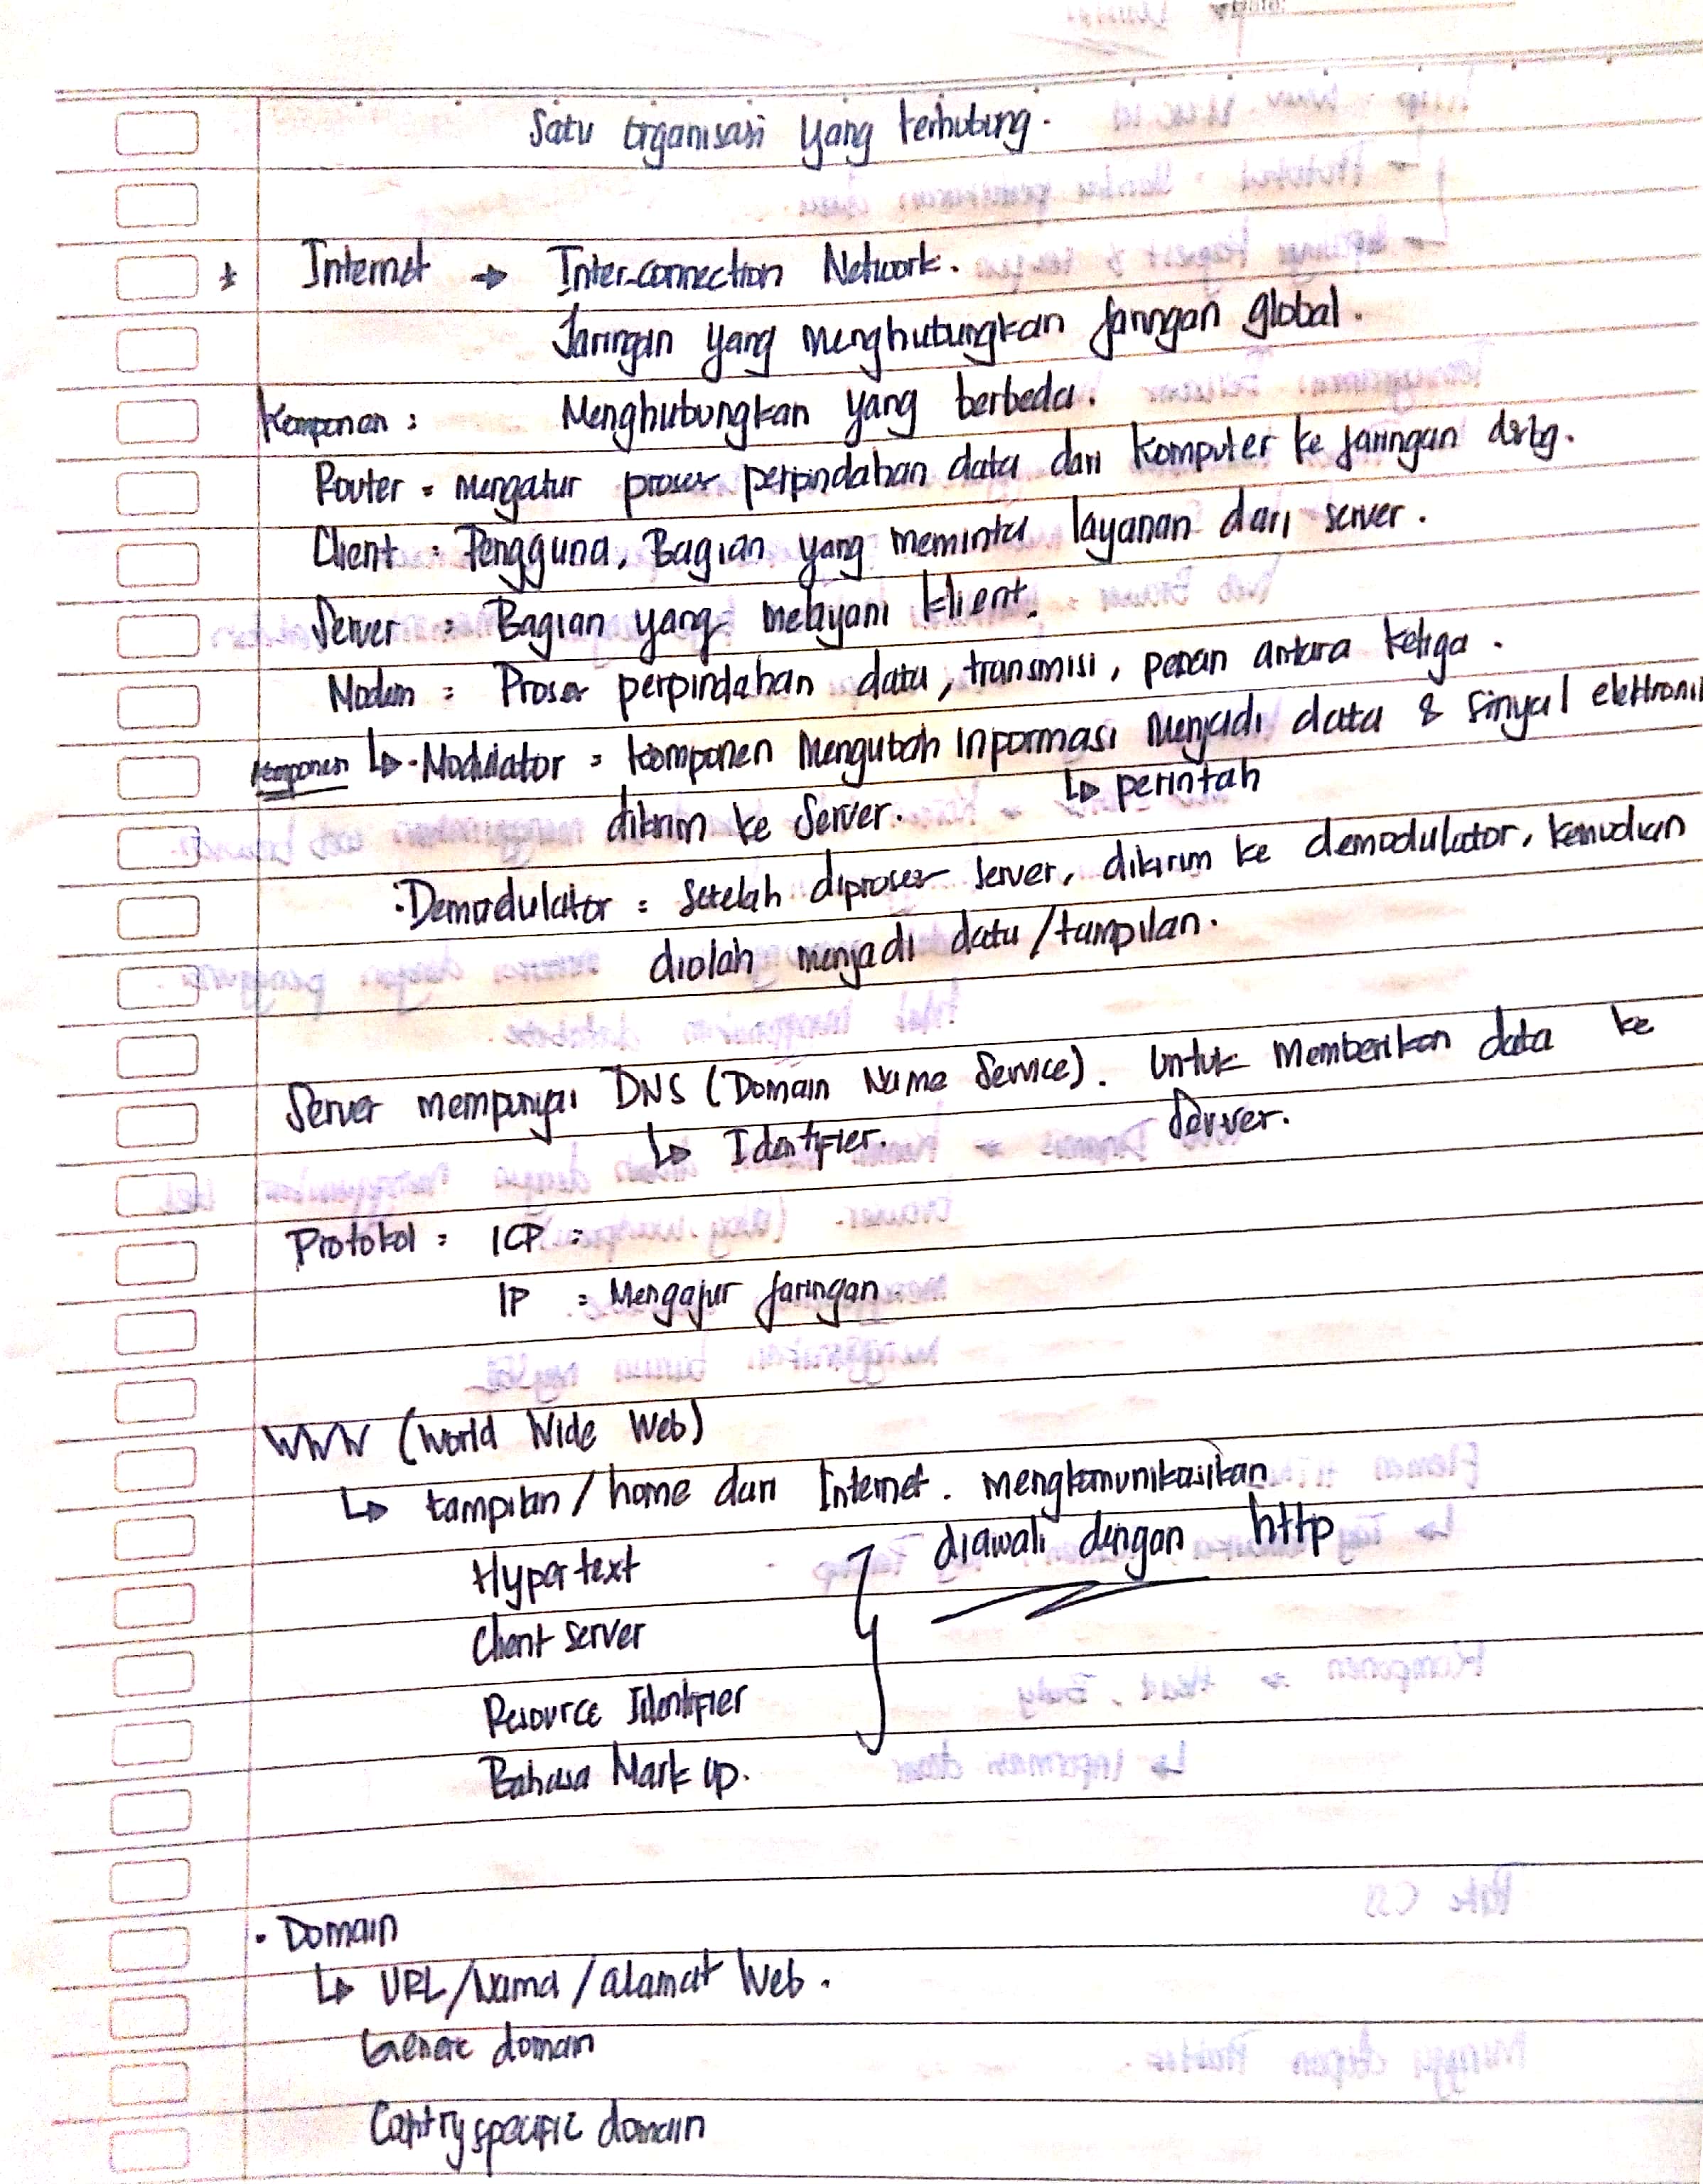 Satu organisasi yang terhubung.
* Internet → Inter-connection Network.
Jaringan yang menghubungkan jaringan global.
Komponen : Menghubungkan yang berbeda.
Router = mengatur proses perpindahan data dari komputer ke jaringan
Client : Pengguna, Bagian yang meminta layanan dari server.
Server : Bagian yang melayani klient.
Modem = Proses perpindahan data, transmisi, peran antara ketiga.
Komponen ↳ · Modulator = komponen mengubah informasi menjadi data & sinyal elektronik
dikirim ke Server. ↳ perintah
· Demodulator = setelah diproses server, dikirim ke demodulator, kemudian
diolah menjadi data/tampilan.
Server mempunyai DNS (Domain Name Service). Untuk memberikan data ke
↳ Identifier. Server.
Protokol = ICP =
IP = Mengatur jaringan
WWW (World Wide Web)
↳ tampilan / home dari Internet. mengkomunikasikan
Hypertext } diawali dengan http
Client server
Resource Identifier
Bahasa Mark up.
· Domain
↳ URL/Nama/alamat Web.
Generic domain
Country specific domain